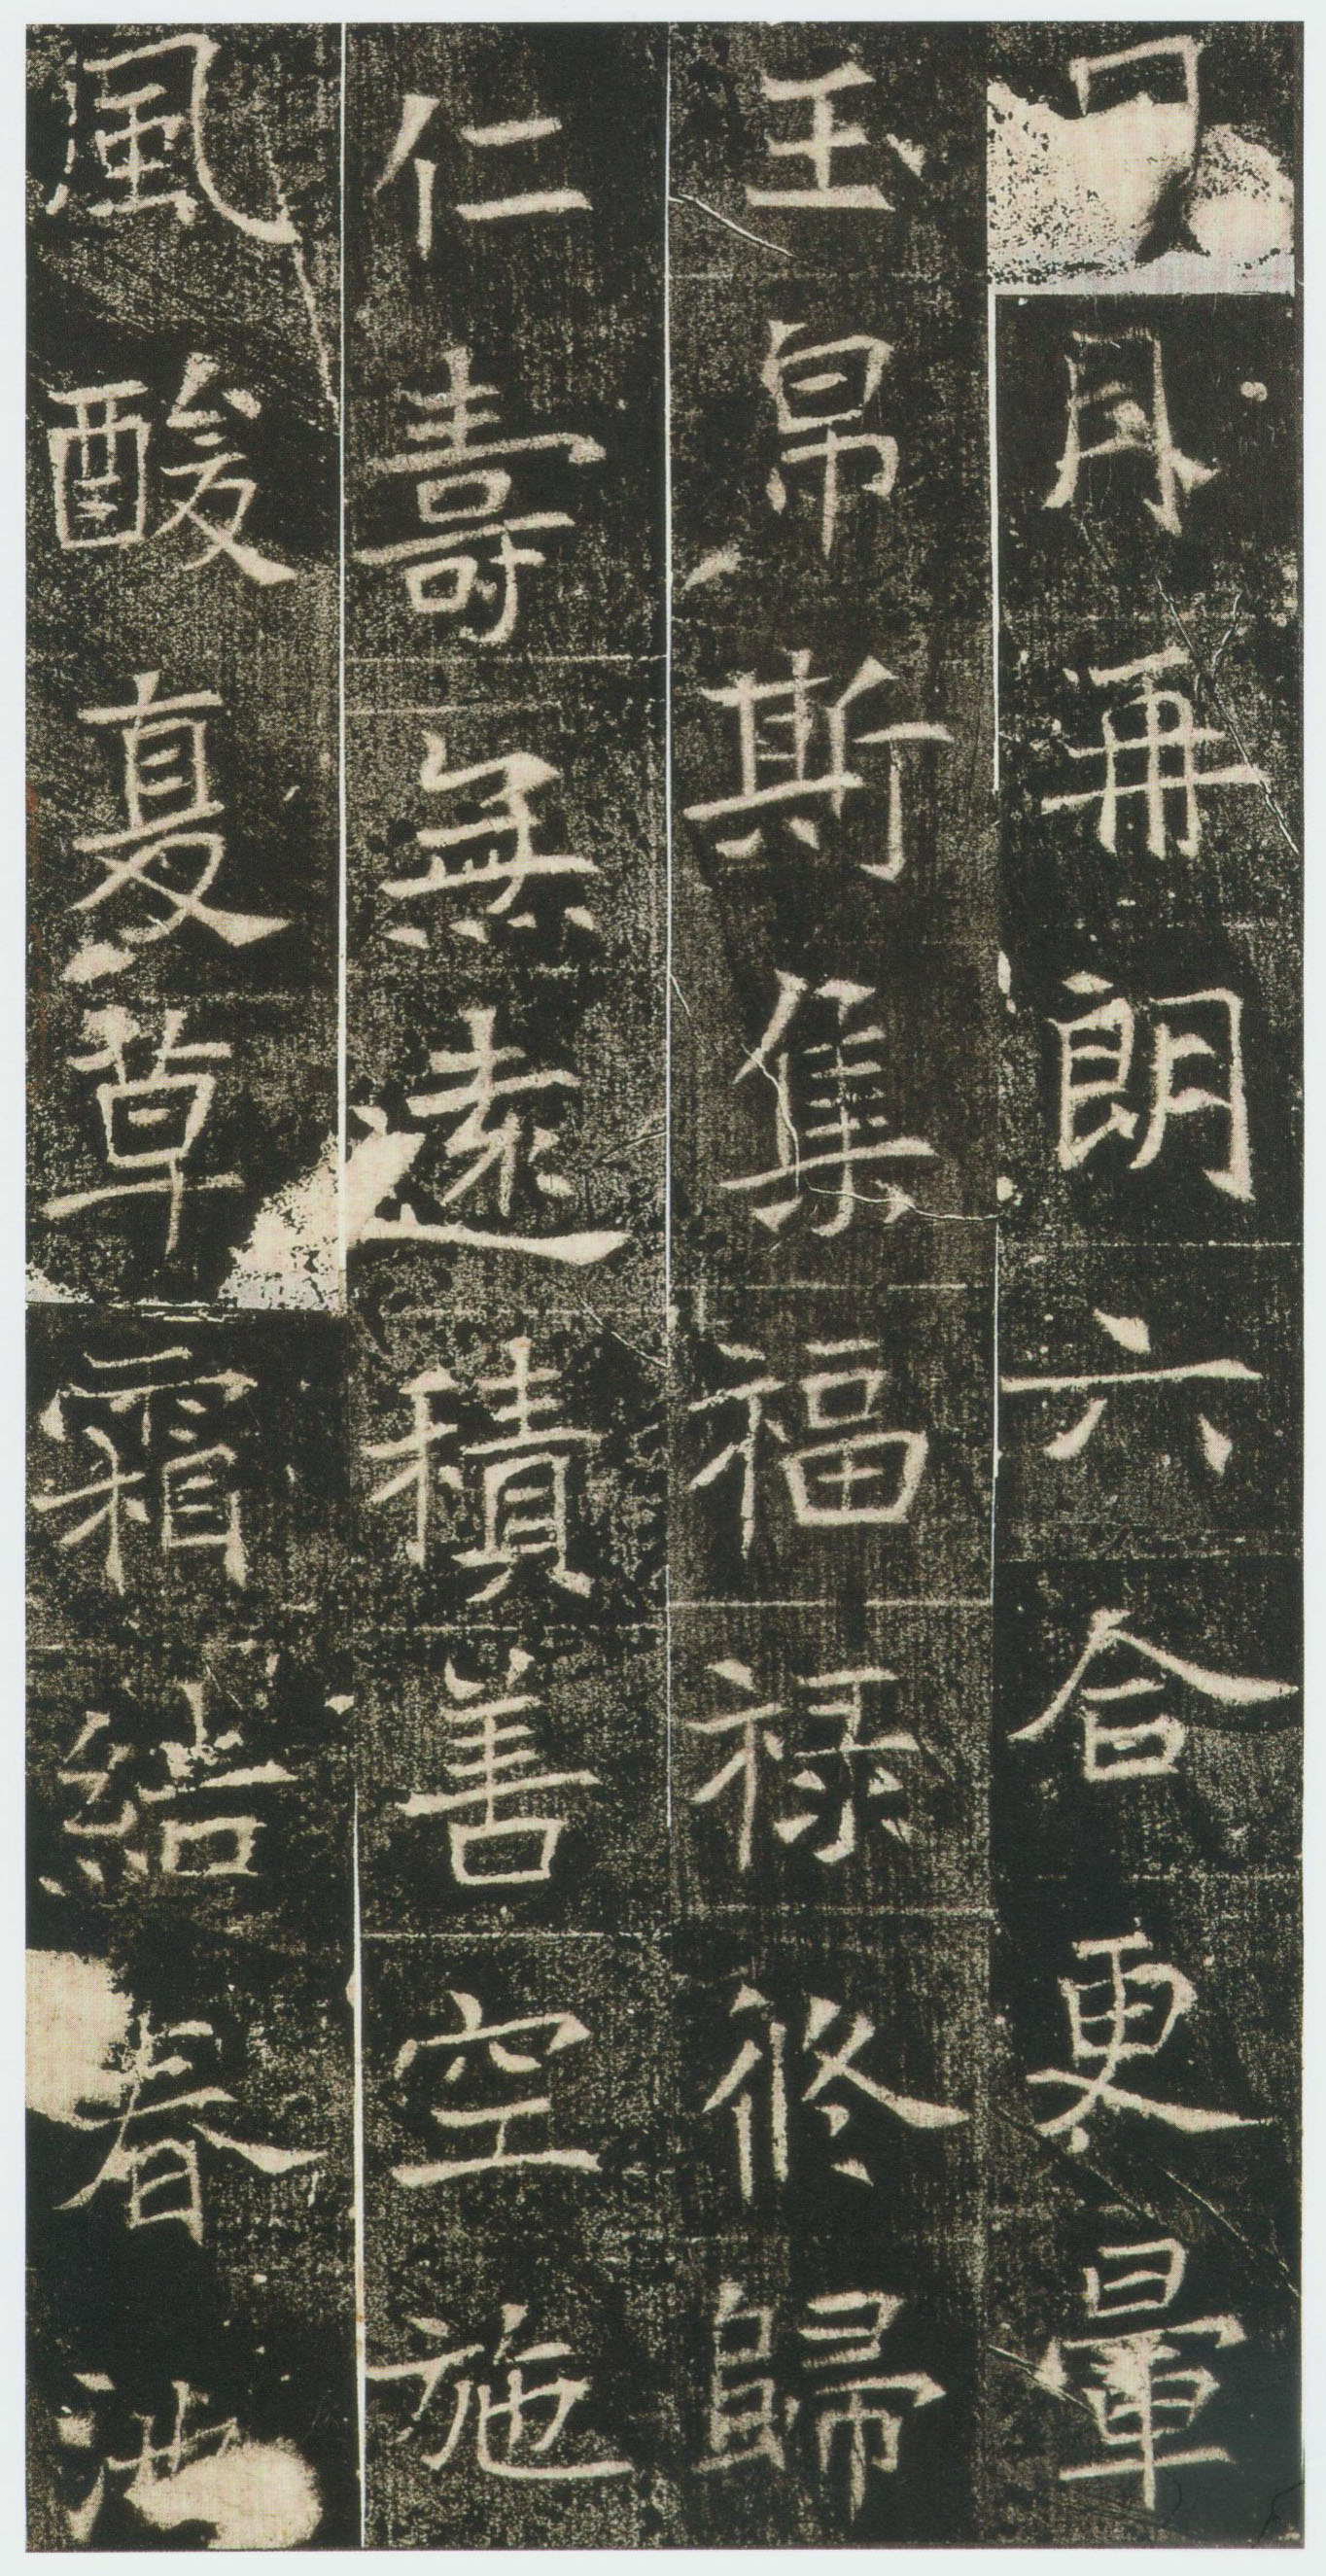 日月再朗六合更暈
玉帛斯集福祿修歸
仁壽無遠積善空施
風酸夏草霜結春池